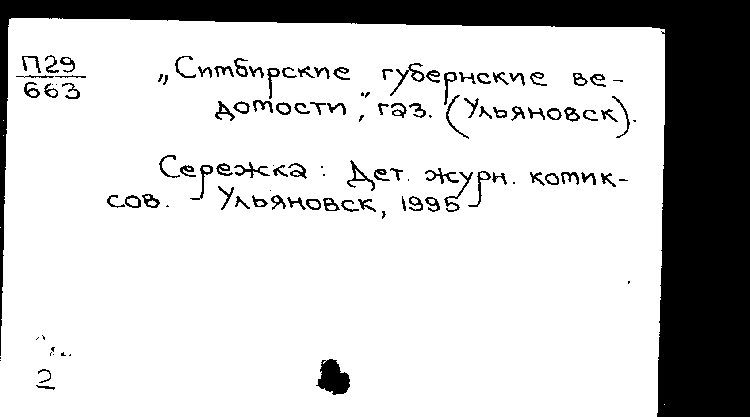 П29
663
„Симбирские губернские ве-
домости", газ. (Ульяновск).
Сережка : Дет. журн. комик-
сов. - Ульяновск, 1995 -
2